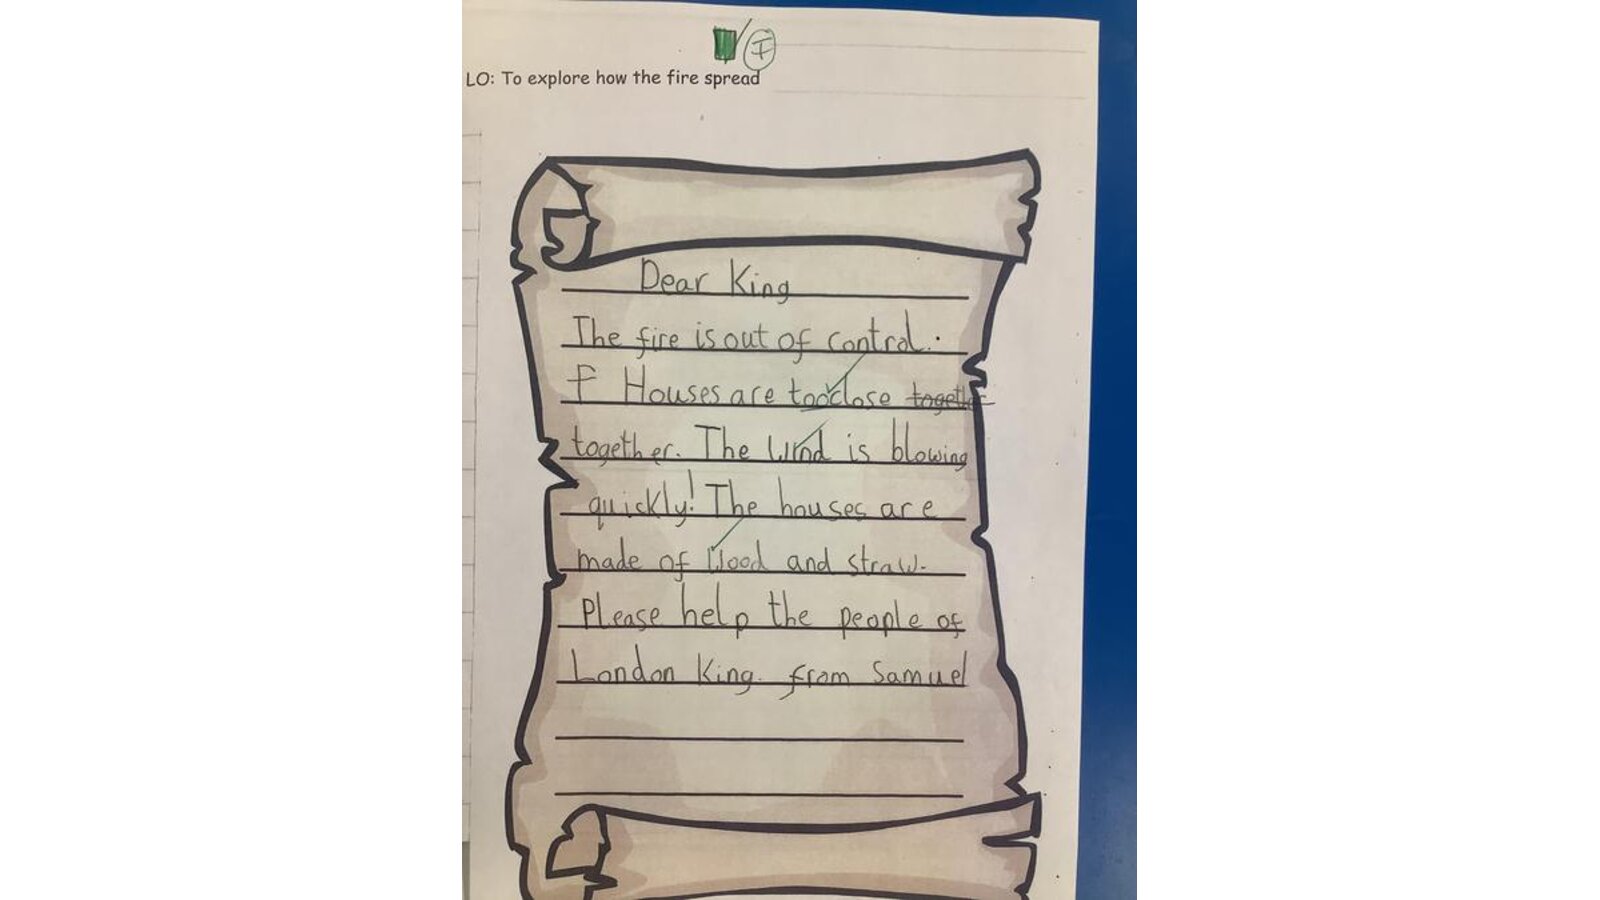 I
LO: To explore how the fire spread
Dear King
The fire is out of control.
f Houses are too close together
together. The wind is blowing
quickly! The houses are
made of wood and straw.
Please help the people of
London King. from Samuel